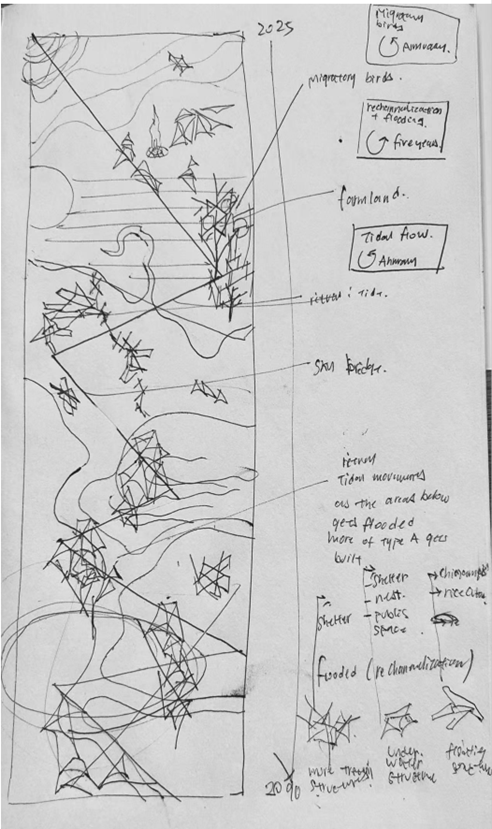 2025
Migratory
birds
Annuary.
migratory birds.
rechannelization
+ flooding.
five years.
farmland.
Tidal flow.
Annuary
: Tide.
bridge.
Tidal movements
as the areas below
gets flooded
more of type A gets
built
shelter
- nest.
- public
space.
shelter
flooded (rechannelization)
more
structures.
under
water
structure
floating
structure